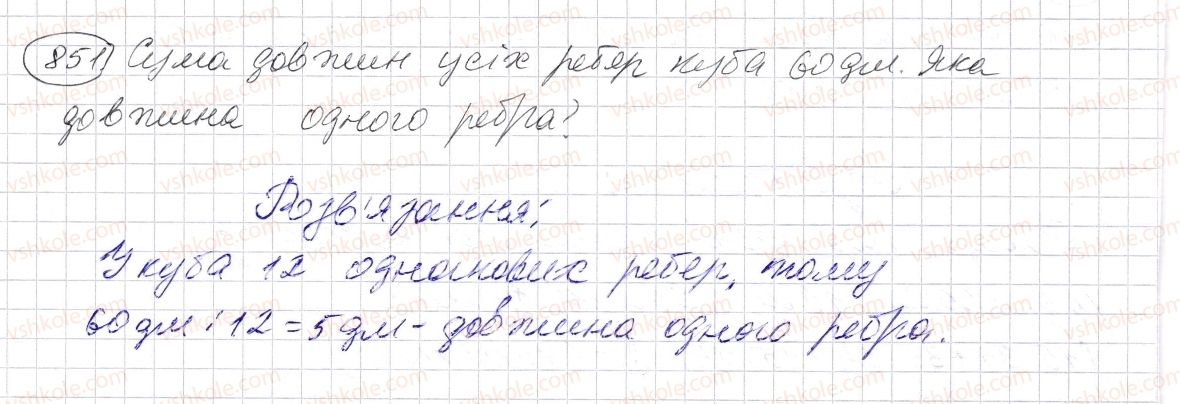 851) Сума довжин усіх ребер куба 60 дм. Яка
довжина одного ребра?
Розв'язання:
У куба 12 однакових ребер, тому
60 дм : 12 = 5 дм - довжина одного ребра.
vshkole.com